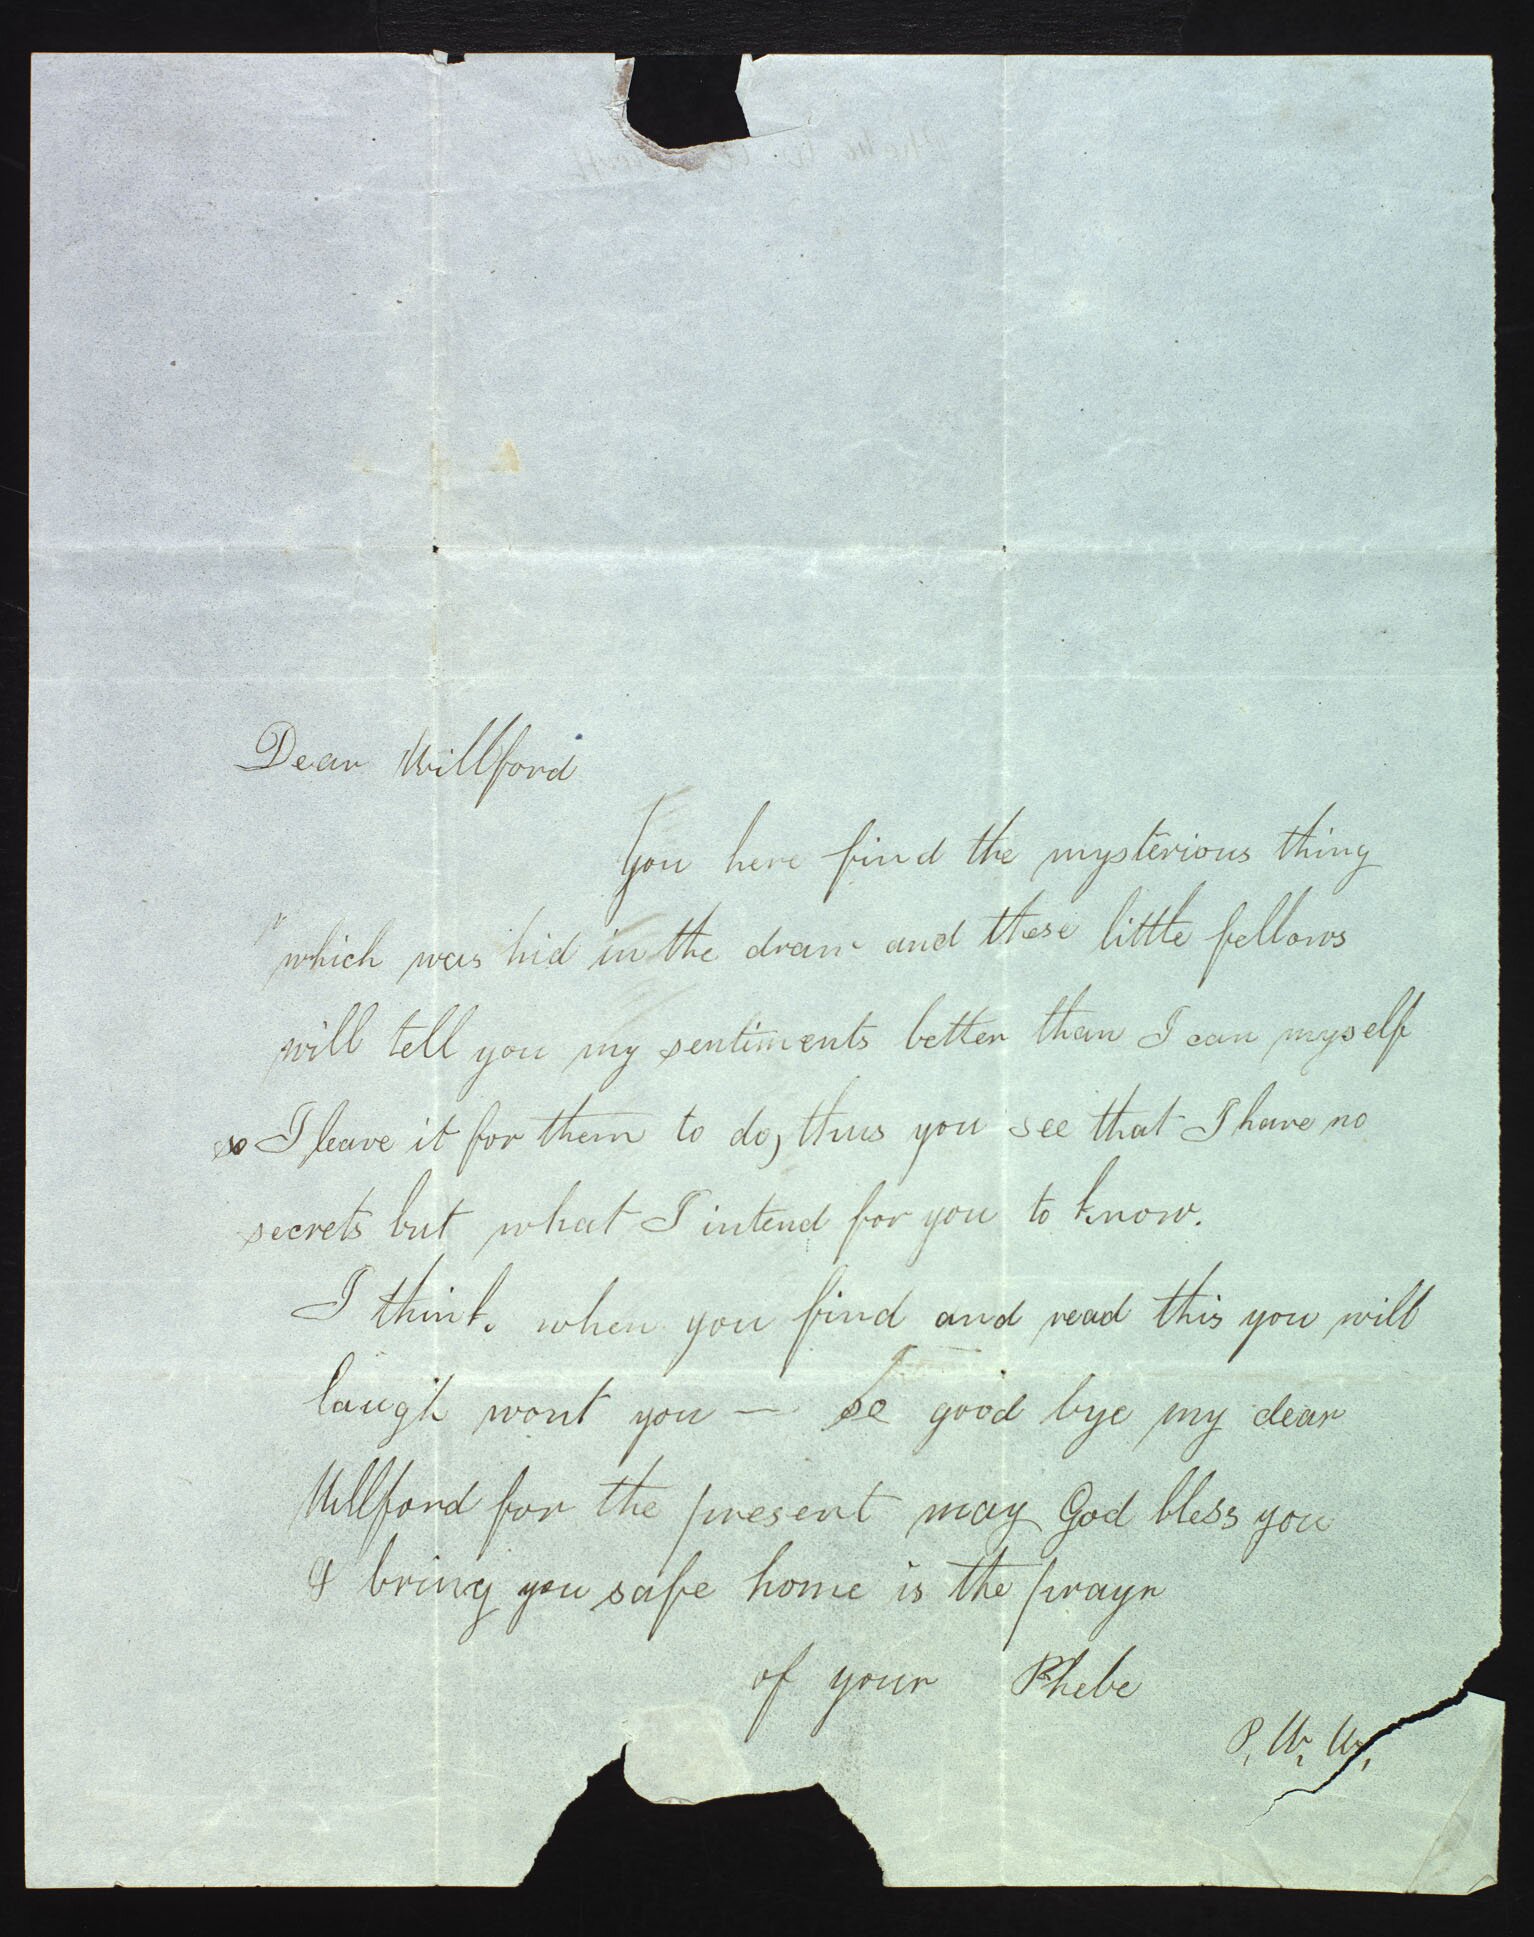 Dear Willford
You here find the mysterious thing
which was hid in the draw and these little fellows
will tell you my sentiments better than I can myself
so I leave it for them to do, thus you see that I have no
secrets but what I intend for you to know.
I think when you find and read this you will
laugh wont you — so good bye my dear
Willford for the present may God bless you
& bring you safe home is the prayr
of your Phebe
P. W. W.